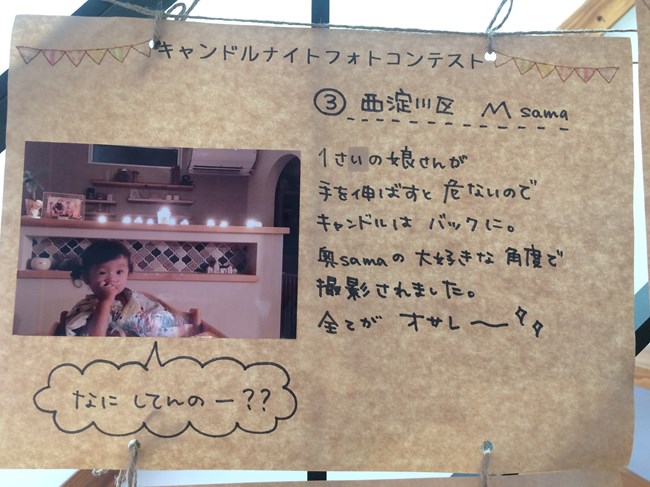 キャンドルナイトフォトコンテスト
③ 西淀川区 M sama
1さいの娘さんが
手を伸ばすと危ないので
キャンドルは バックに。
奥samaの大好きな角度で
撮影されました。
全てが オサレ〜
なにしてんのー??